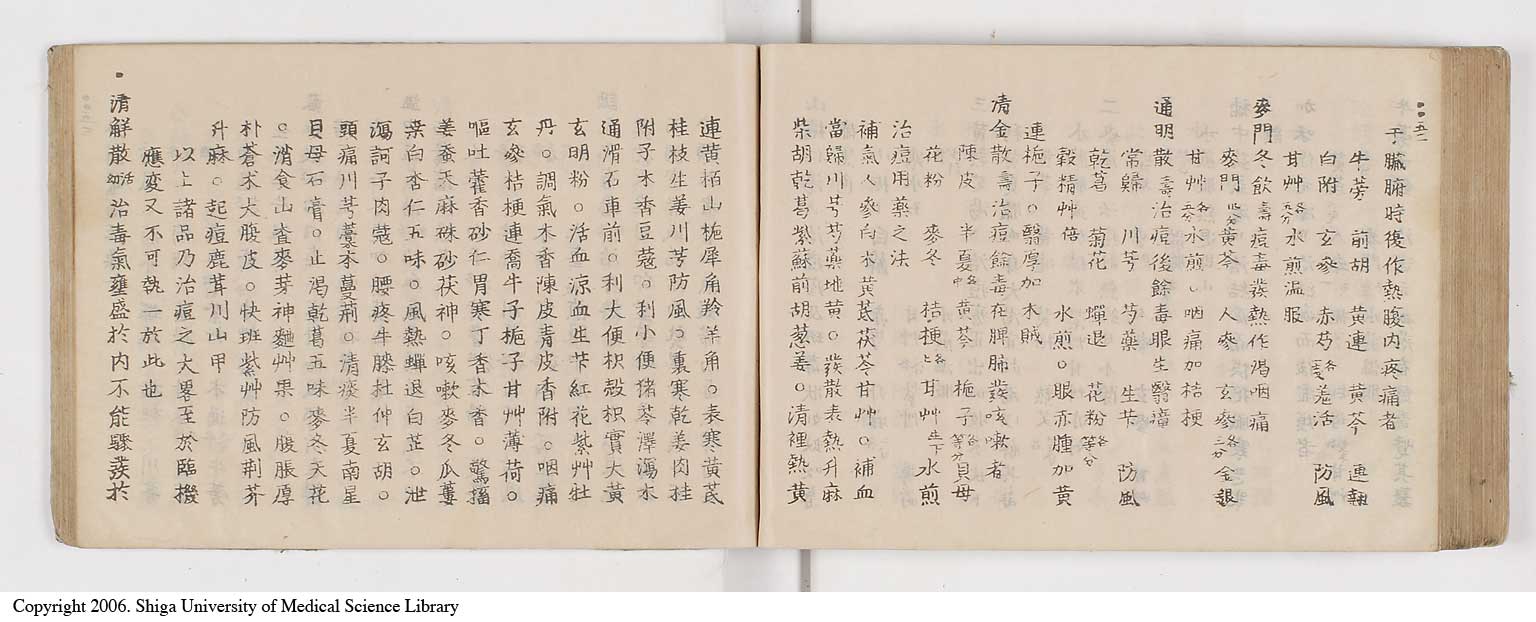 于臟腑時後作熱腹内疼痛者
牛蒡 前胡 黄連 黄芩 連翹
白附 玄參各 赤芍 羗活各 防風
甘艸各 水煎温服
麥門冬飲 壽痘毒發熱作渴咽痛
麥門 黄芩 人參 玄參各二分 金銀
甘艸 水煎。咽痛加桔梗
通明散 壽治痘後餘毒眼生翳瘴
當歸 川芎 芍藥 生苄 防風
乾葛 菊花 蟬退 花粉各等分
穀精艸倍 水煎。眼赤腫加黄
連梔子。翳厚加木賊
清金散 壽治痘餘毒在脾肺發咳嗽者
陳皮 半夏 黄芩 梔子等分 貝母
花粉 麥冬 桔梗 甘艸 水煎
治痘用藥之法
補氣人參白朮黄芪茯苓甘艸。補血
當歸川芎芍藥地黄。發散表熱升麻
柴胡乾葛紫蘇前胡葱姜。清裡熱黄
連黄栢山梔犀角羚羊角。表寒黄芪
桂枝生姜川芎防風。裏寒乾姜肉桂
附子木香豆蔻。利小便猪苓澤瀉木
通滑石車前。利大便枳殻枳實大黄
玄明粉。活血涼血生苄紅花紫艸牡
丹。調氣木香陳皮青皮香附。咽痛
玄參桔梗連喬牛子梔子甘艸薄荷。
嘔吐藿香砂仁胃寒丁香木香。驚搐
姜蚕天麻硃砂茯神。咳嗽麥冬瓜蔞
桑白杏仁五味。風熱蟬退白芷。泄
瀉訶子肉蔻。腰疼牛膝杜仲玄胡。
頭痛川芎藁本蔓荊。清痰半夏南星
貝母石膏。止渴乾葛五味麥冬天花
。消食山査麥芽神麯艸果。腹脹厚
朴蒼朮大腹皮。快班紫艸防風荊芥
升麻。起痘鹿茸川山甲
以上諸品乃治痘之大畧至於臨機
應変又不可執一於此也
清解散 幼活 治毒氣壅盛於内不能驟發於